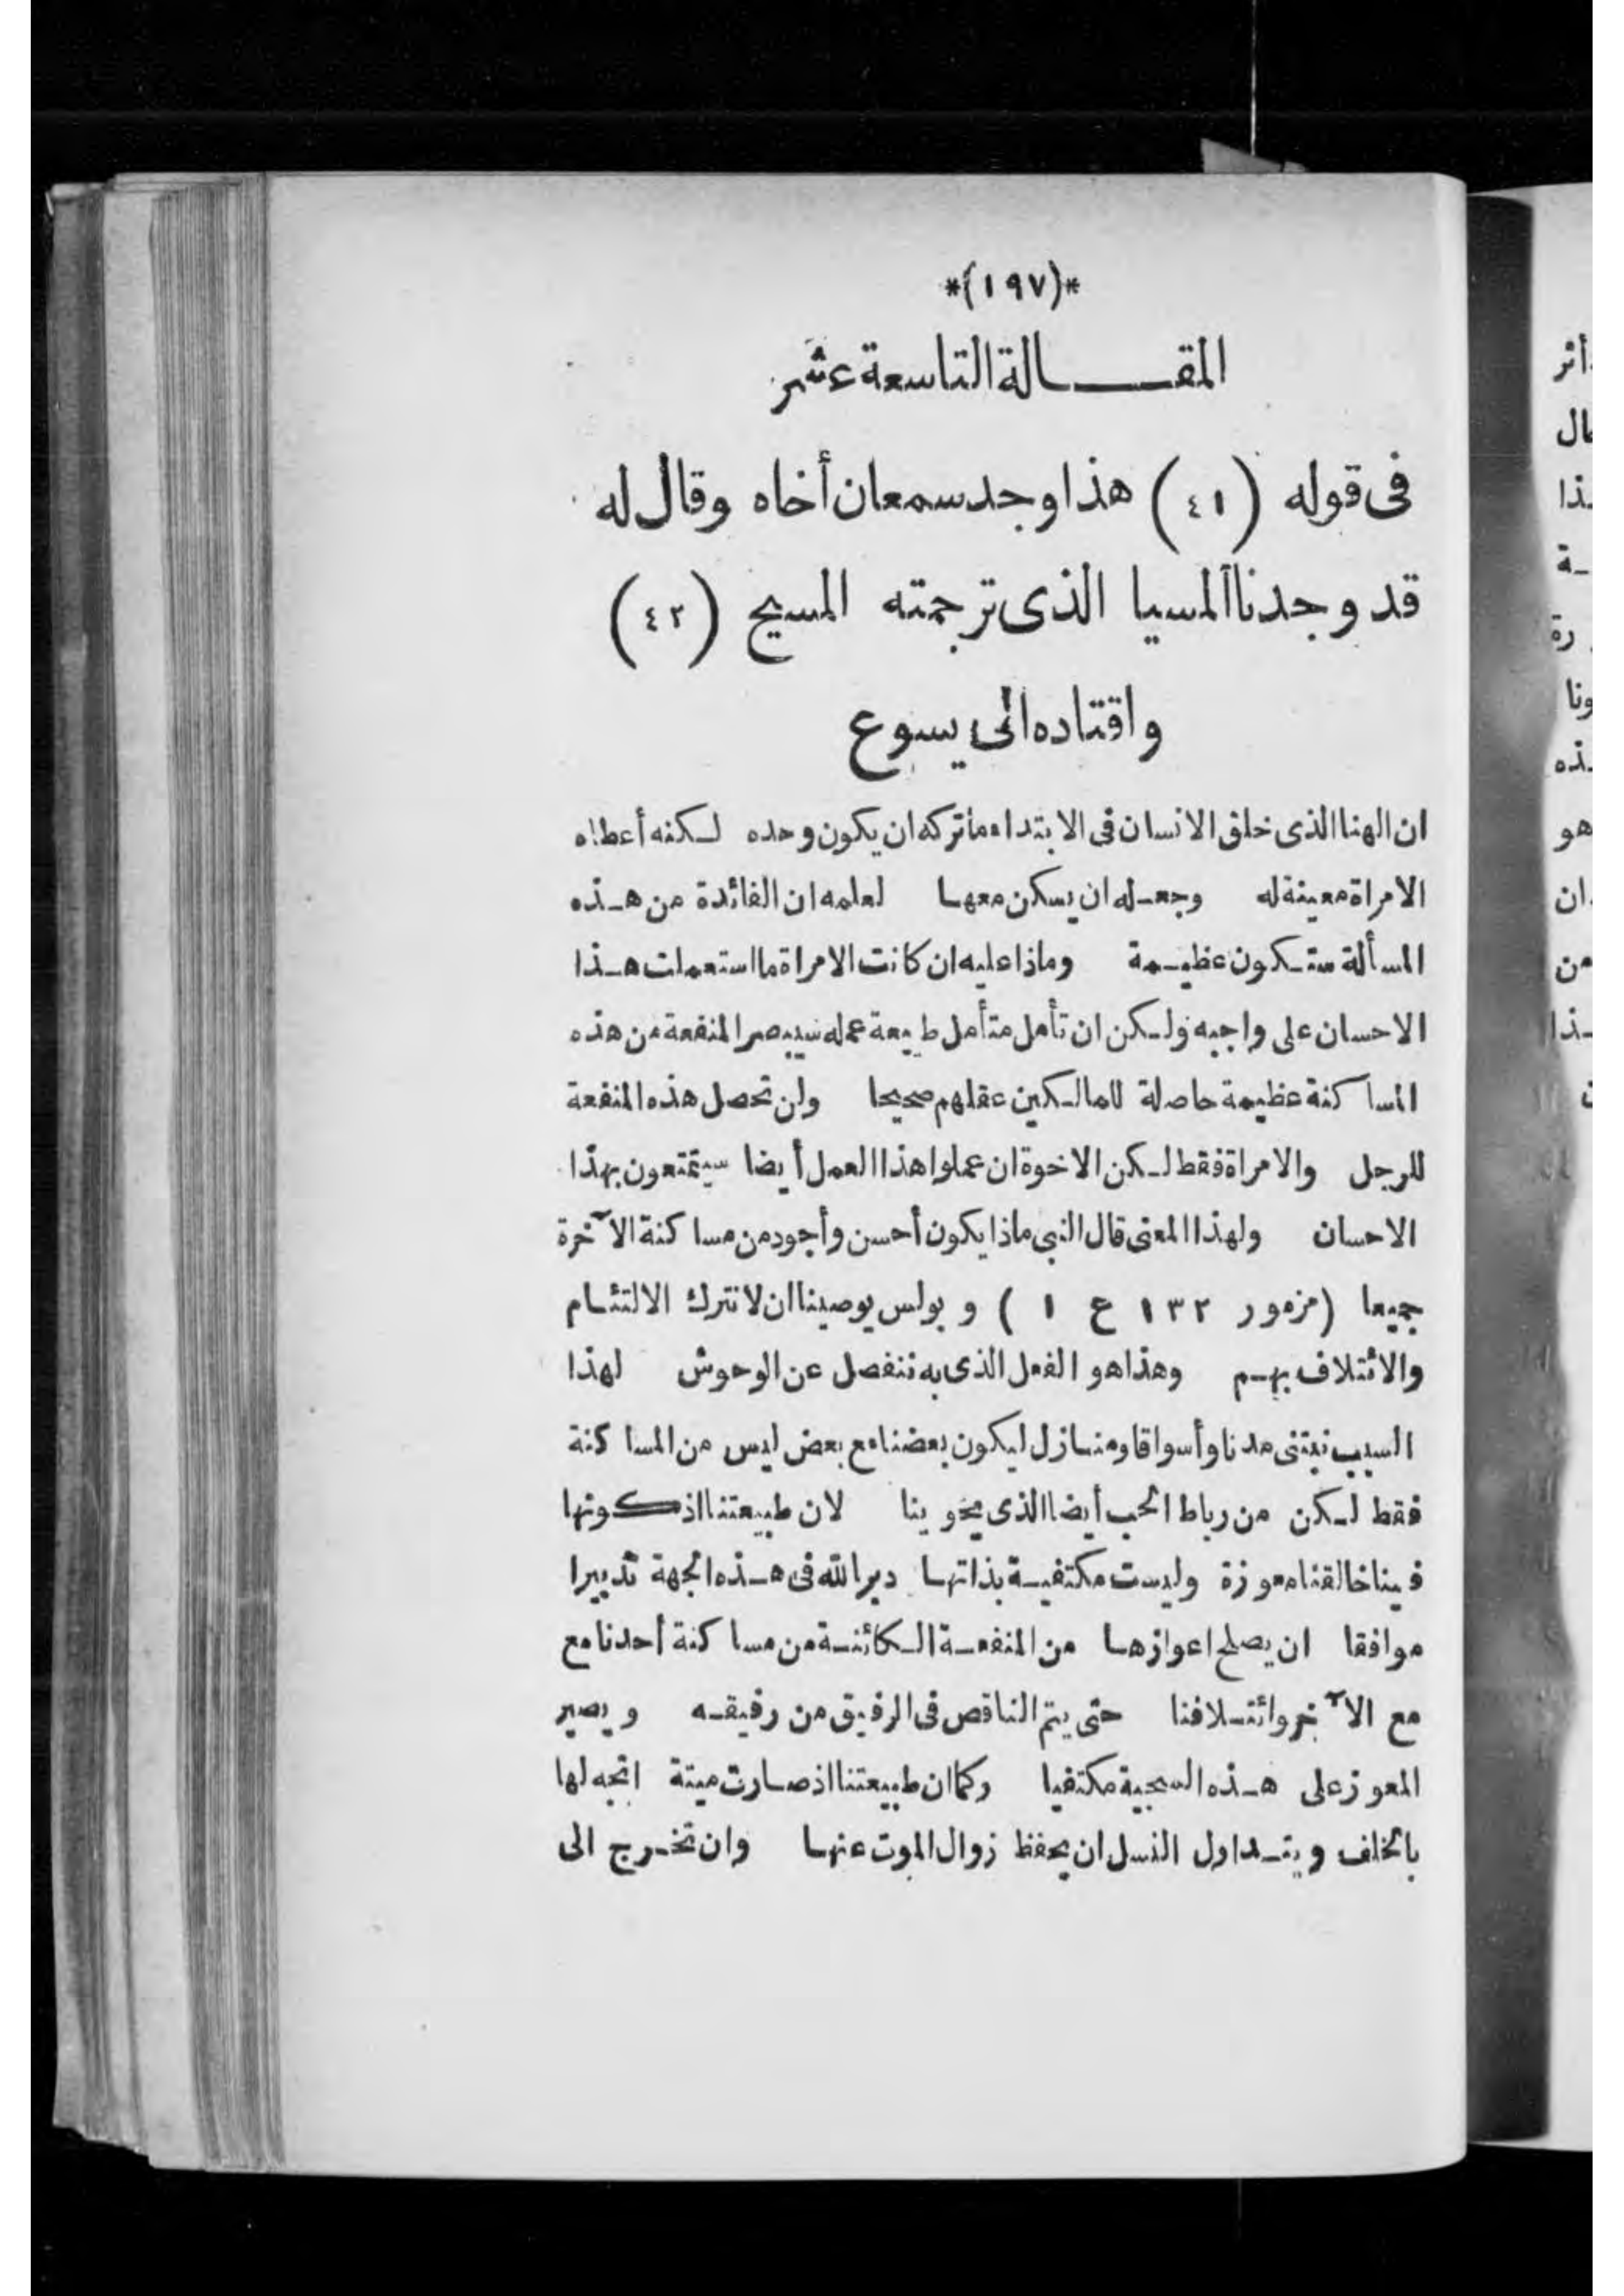 *(١٩٧)*
المقـــالة التاسعة عشر
فى قوله (٤١) هذا وجد سمعان أخاه وقال له
قد وجدنا المسيا الذى ترجمته المسيح (٤٢)
واقتاده الى يسوع
ان الهنا الذى خلق الانسان فى الابتداء ما تركه ان يكون وحده لكنه أعطاه
الامراة معينة له وجعله ان يسكن معها لعلمه ان الفائدة من هذه
المسألة ستكون عظيمة وماذا عليه ان كانت الامراة ما استعملت هذا
الاحسان على واجبه ولكن ان تأمل متأمل طبيعة عمله سيبصر المنفعة من هذه
المساكنة عظيمة حاصلة للمالكين عقلهم صحيحا ولن تحصل هذه المنفعة
للرجل والامراة فقط لكن الاخوة ان عملوا هذا العمل أيضا سيتمتعون بهذا
الاحسان ولهذا المعنى قال النبى ماذا يكون أحسن وأجود من مساكنة الآخرة
جميعا (مزمور ١٣٢ ع ١ ) و بولس يوصينا ان لا نترك الالتئام
والائتلاف بهم وهذا هو الفعل الذى به ننفصل عن الوحوش لهذا
السبب نبتنى مدنا وأسواقا ومنازل ليكون بعضنا مع بعض ليس من المساكنة
فقط لكن من رباط الحب أيضا الذى يحوينا لان طبيعتنا اذ كونها
فينا خالقنا معوزة وليست مكتفية بذاتها دبر الله فى هذه الجهة تدبيرا
موافقا ان يصلح اعوازها من المنفعة الكائنة من مساكنة أحدنا مع
مع الآخر وائتلافنا حتى يتم الناقص فى الرفيق من رفيقه و يصير
المعوز على هذه السجية مكتفيا وكما ان طبيعتنا اذ صارت ميتة اتجه لها
بالخلف و بتداول النسل ان يحفظ زوال الموت عنها وان تخرج الى
أثر
ذا
ة
رة
ونا
ذه
هو
ان
من
ذا